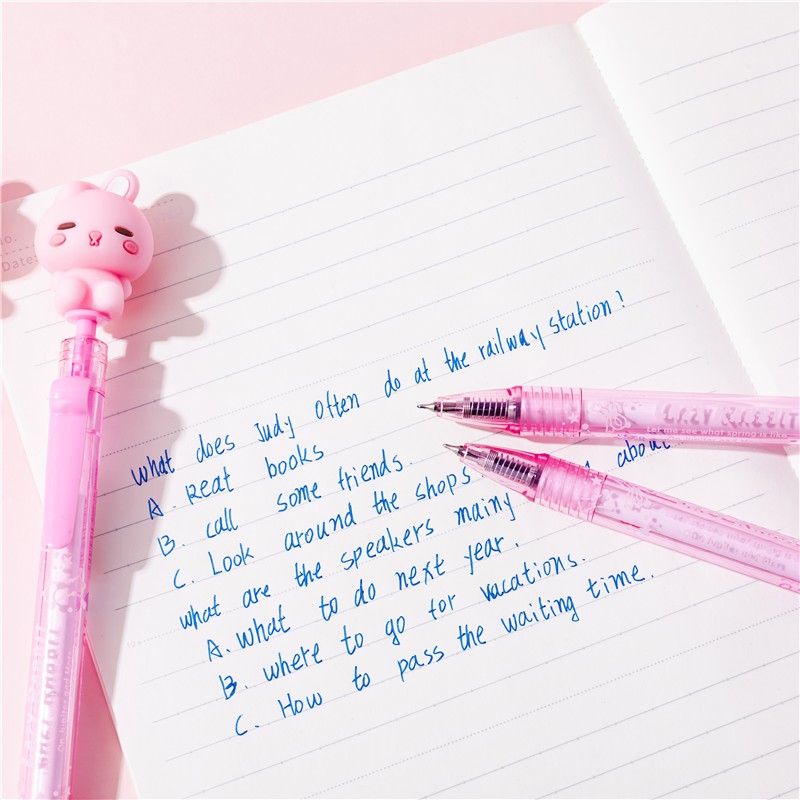 No.
Date:
what does Judy often do at the railway station?
A. Reat books
B. call some friends.
C. Look around the shops.
what are the speakers mainy about
A. what to do next year.
B. where to go for vacations.
C. How to pass the waiting time.